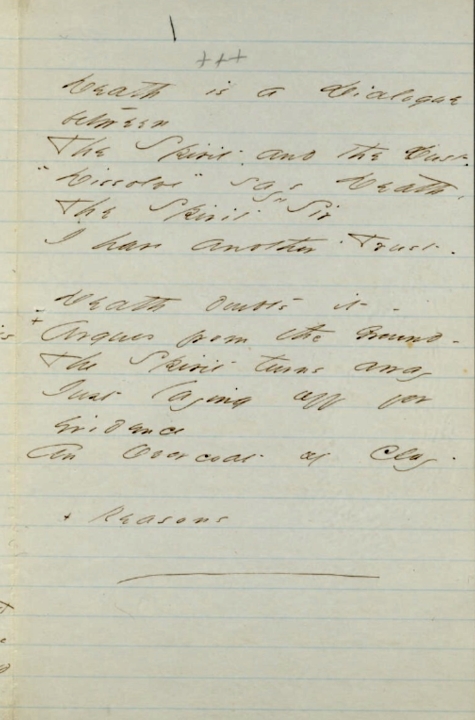 +++
Death is a Dialogue
between
The Spirit and the Dust.
"Dissolve" says Death,
The Spirit "Sir
I have another Trust".

Death doubts it -
+ Argues from the Ground -
The Spirit turns away
Just laying off for
Evidence
An Overcoat of Clay.

+ Reasons